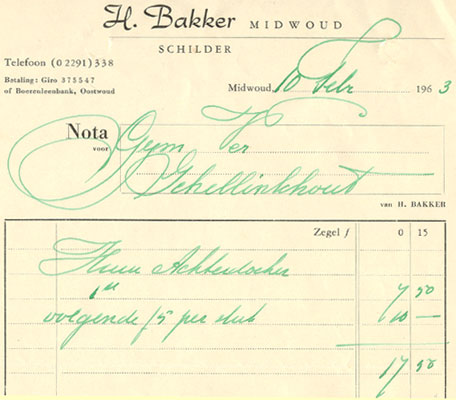 H. Bakker MIDWOUD
SCHILDER
Telefoon (02291) 338
Betaling: Giro 375547
of Boerenleenbank, Oostwoud
Midwoud, 10 Febr 1963
Nota
voor
Gym Ver
Schellinkhout
van H. BAKKER
Zegel f 0 15
Huur Achterdoeken
1e 7 50
volgende f5 per stuk 10 —
17 50